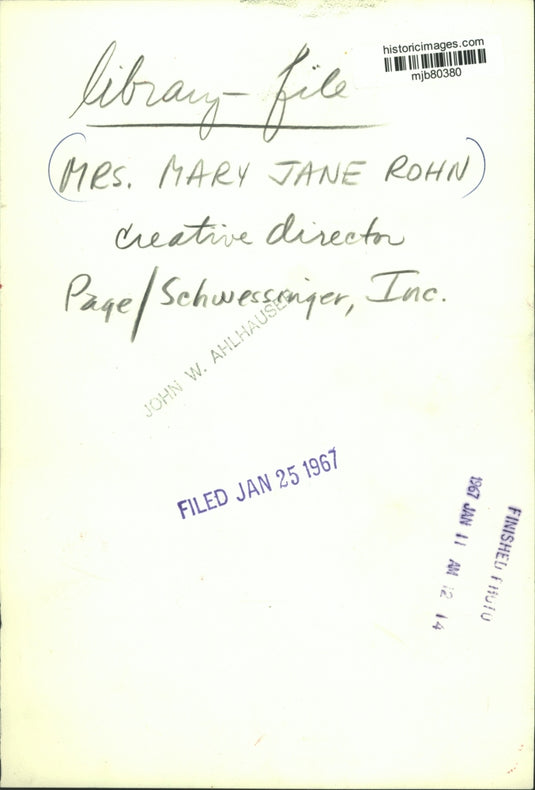 historicimages.com
mjb80380
library - file
(MRS. MARY JANE ROHN)
creative director
Page/Schwessinger, Inc.
JOHN W. AHLHAUSER
FILED JAN 25 1967
FINISHED PHOTO
1967 JAN 11 AM 12 14